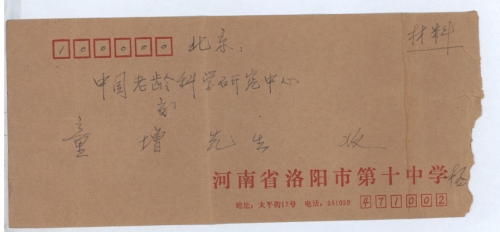 100000 北京: 材料
中国老龄科学研究中心
童增先生 收
河南省洛阳市第十中学
地址:太平街17号 电话:251009 471002